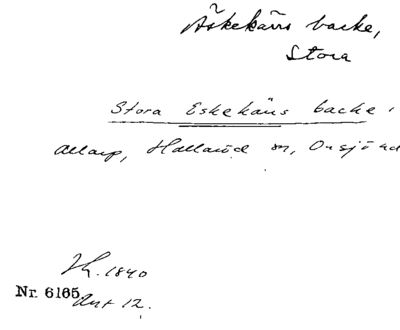 Äskekärs backe,
Stora
Stora Eskekärs backe,
Allarp, Hallaröd sn, Onsjö hd
Jh. 1840
Nr. 6165 Akt 12.